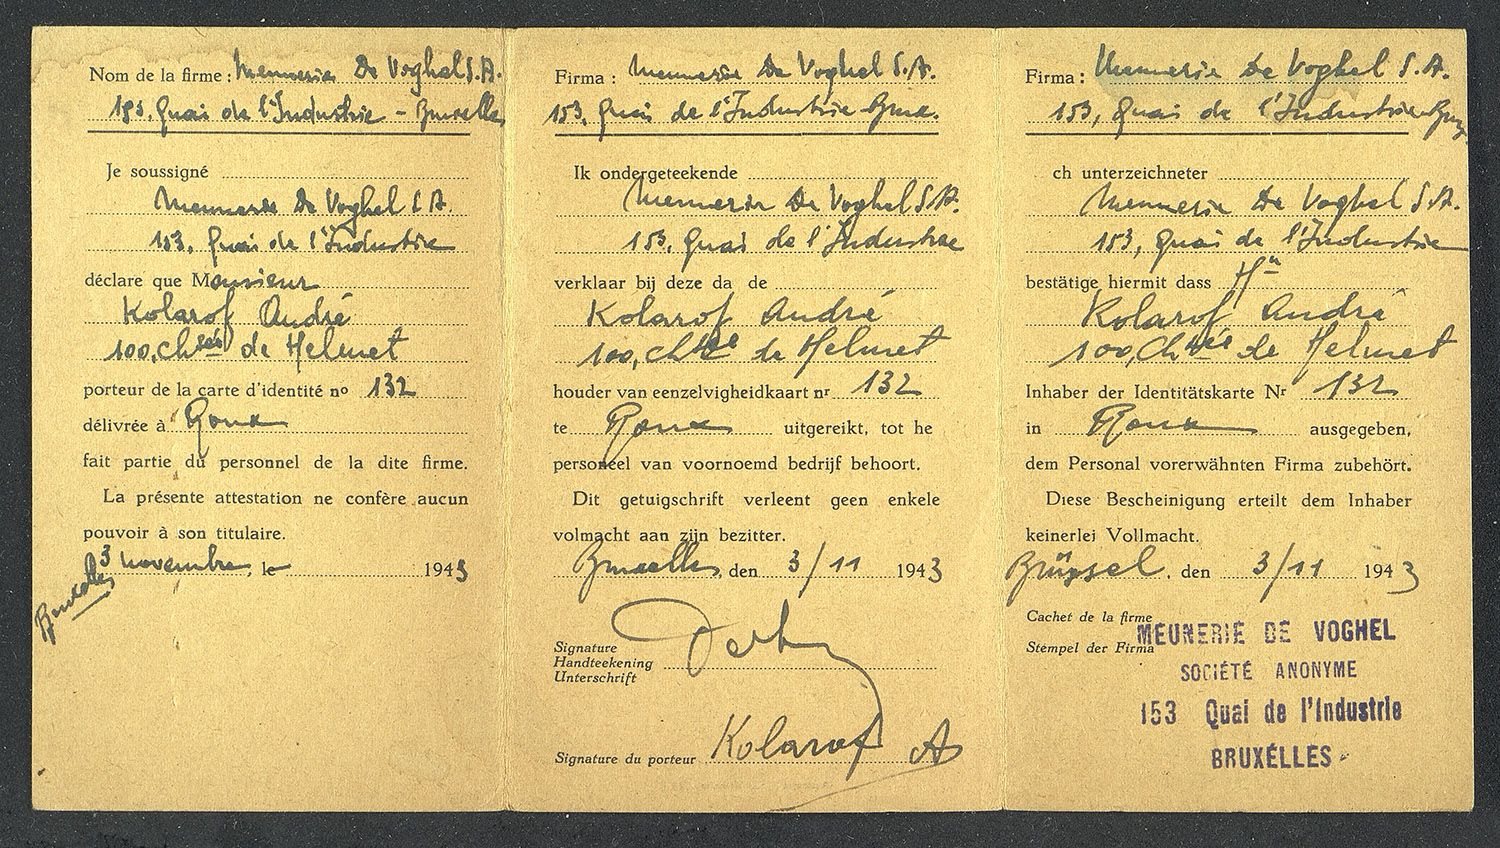 Nom de la firme : Meunerie De Voghel S.A.
153, Quai de l'Industrie - Bruxelles
Je soussigné
Meunerie De Voghel S.A.
153, Quai de l'Industrie
déclare que Monsieur
Kolarof André
100, Chée de Helmet
porteur de la carte d'identité no 132
délivrée à Roux
fait partie du personnel de la dite firme.
La présente attestation ne confère aucun
pouvoir à son titulaire.
Bruxelles 3 novembre, le 1943
Firma : Meunerie De Voghel S.A.
153, Quai de l'Industrie Brux.
Ik ondergeteekende
Meunerie De Voghel S.A.
153, Quai de l'Industrie
verklaar bij deze da de
Kolarof André
100, Chée de Helmet
houder van eenzelvigheidkaart nr 132
te Roux uitgereikt, tot he
personeel van voornoemd bedrijf behoort.
Dit getuigschrift verleent geen enkele
volmacht aan zijn bezitter.
Bruxelles, den 3/11 1943
Signature
Handteekening
Unterschrift
Signature du porteur Kolarof A
Firma : Meunerie De Voghel S.A.
153, Quai de l'Industrie Brux
ch unterzeichneter
Meunerie De Voghel S.A.
153, Quai de l'Industrie
bestätige hiermit dass
Kolarof André
100, Chée de Helmet
Inhaber der Identitätskarte Nr 132
in Roux ausgegeben,
dem Personal vorerwähnten Firma zubehört.
Diese Bescheinigung erteilt dem Inhaber
keinerlei Vollmacht.
Brüssel, den 3/11 1943
Cachet de la firme
Stempel der Firma
MEUNERIE DE VOGHEL
SOCIÉTÉ ANONYME
153 Quai de l'Industrie
BRUXELLES